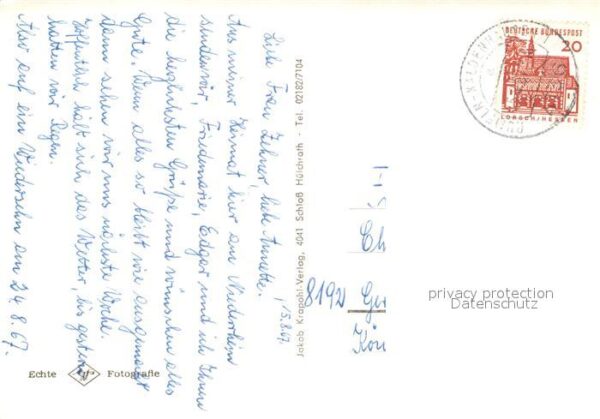 15.8.67.
Liebe Frau Zehner, liebe Annette.
Aus meiner Heimat hier am Niederrhein
senden wir, Friedemarie, Edgar und ich Ihnen
die herzlichsten Grüße und wünschen alles
Gute. Wenn alles so bleibt wie ausgemacht
dann sehen wir uns nächste Woche.
Hoffentlich hält sich das Wetter, bis gestern
hatten wir Regen.
Also auf ein Wiedersehn am 24.8.67.
Echte Agfa Fotografie
Jakob Krapohl-Verlag, 4041 Schloß Hülchrath - Tel. 02182/7104
DEUTSCHE BUNDESPOST
20
LORSCH/HESSEN
Ch
8192 Ger
Kön
privacy protection
Datenschutz